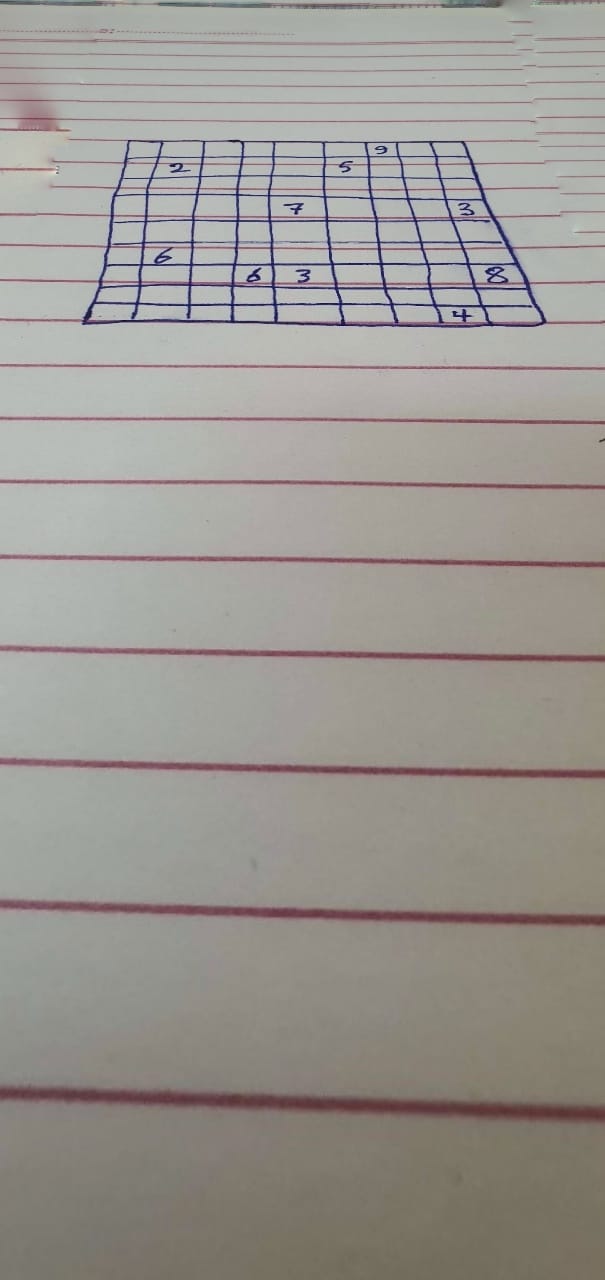 9
2 5
7 3
6
6 3 8
4